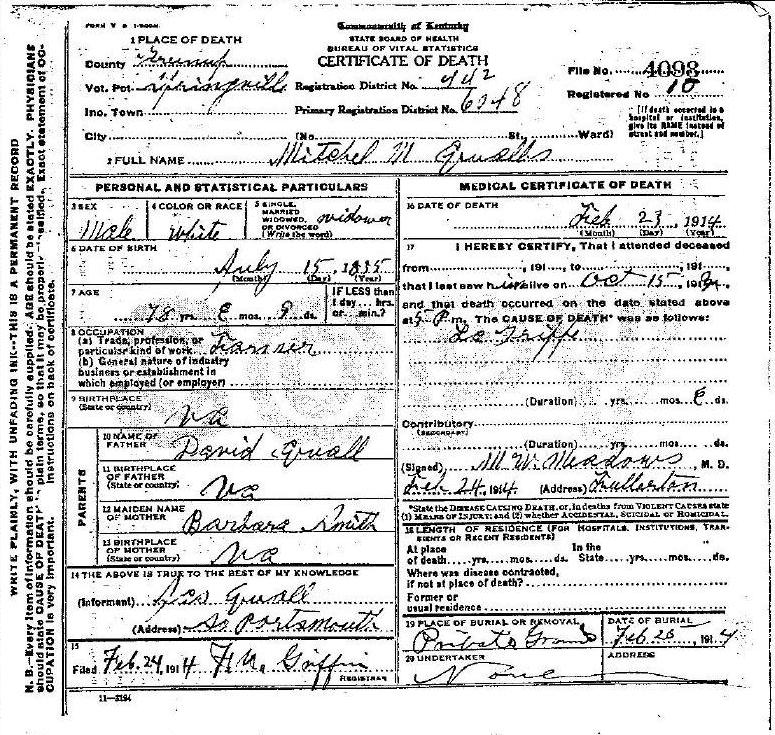 FORM V S 1-200M.
Commonwealth of Kentucky
STATE BOARD OF HEALTH
BUREAU OF VITAL STATISTICS
CERTIFICATE OF DEATH
1 PLACE OF DEATH
County Greenup
Vot. Pct. Springville Registration District No. 442
Ino. Town Primary Registration District No. 6248
City (No. St., Ward)
File No. 4093
Registered No 10
[If death occurred in a
hospital or institution,
give its NAME instead of
street and number.]
2 FULL NAME Mitchel M
PERSONAL AND STATISTICAL PARTICULARS
3 SEX
Male
4 COLOR OR RACE
White
5 SINGLE,
MARRIED
WIDOWED,
OR DIVORCED
(Write the word)
widower
6 DATE OF BIRTH
July 15, 1835
(Month) (Day) (Year)
7 AGE
78 yrs. mos. ds.
IF LESS than
1 day... hrs.
or... min.?
8 OCCUPATION
(a) Trade, profession, or
particular kind of work Farmer
(b) General nature of industry
business or establishment in
which employed (or employer)
9 BIRTHPLACE
(State or country)
Va
PARENTS
10 NAME OF
FATHER
David Quall
11 BIRTHPLACE
OF FATHER
(State or country)
Va
12 MAIDEN NAME
OF MOTHER
Barbara Smith
13 BIRTHPLACE
OF MOTHER
(State or country)
Va
14 THE ABOVE IS TRUE TO THE BEST OF MY KNOWLEDGE
(Informant) Quall
(Address) So Portsmouth
15
Filed Feb. 24, 1914 Griffin
REGISTRAR
11-3184
MEDICAL CERTIFICATE OF DEATH
16 DATE OF DEATH
Feb 23, 1914
(Month) (Day) (Year)
17 I HEREBY CERTIFY, That I attended deceased
from, 191, to, 191
that I last saw h alive on Oct 15, 191
and that death occurred on the date stated above
at 5 P.m. The CAUSE OF DEATH* was as follows:
La Grippe
(Duration) yrs. mos. ds.
Contributory
(SECONDARY)
(Duration) yrs. mos. ds.
(Signed) M W Meadows, M. D.
Feb 24, 1914 (Address) Fullerton
*State the DISEASE CAUSING DEATH, or, in deaths from VIOLENT CAUSES state
(1) MEANS OF INJURY; and (2) whether ACCIDENTAL, SUICIDAL or HOMICIDAL.
18 LENGTH OF RESIDENCE (FOR HOSPITALS, INSTITUTIONS, TRAN-
SIENTS OR RECENT RESIDENTS)
At place In the
of death yrs. mos. ds. State yrs. mos. ds.
Where was disease contracted,
if not at place of death?
Former or
usual residence
19 PLACE OF BURIAL OR REMOVAL
Private Ground
DATE OF BURIAL
Feb 25, 1914
20 UNDERTAKER
None
ADDRESS
WRITE PLAINLY, WITH UNFADING INK—THIS IS A PERMANENT RECORD
N. B.—Every item of information should be carefully supplied. AGE should be stated EXACTLY. PHYSICIANS
should state CAUSE OF DEATH in plain terms, so that it may be properly classified. Exact statement of OC-
CUPATION is very important. Instructions on back of certificate.